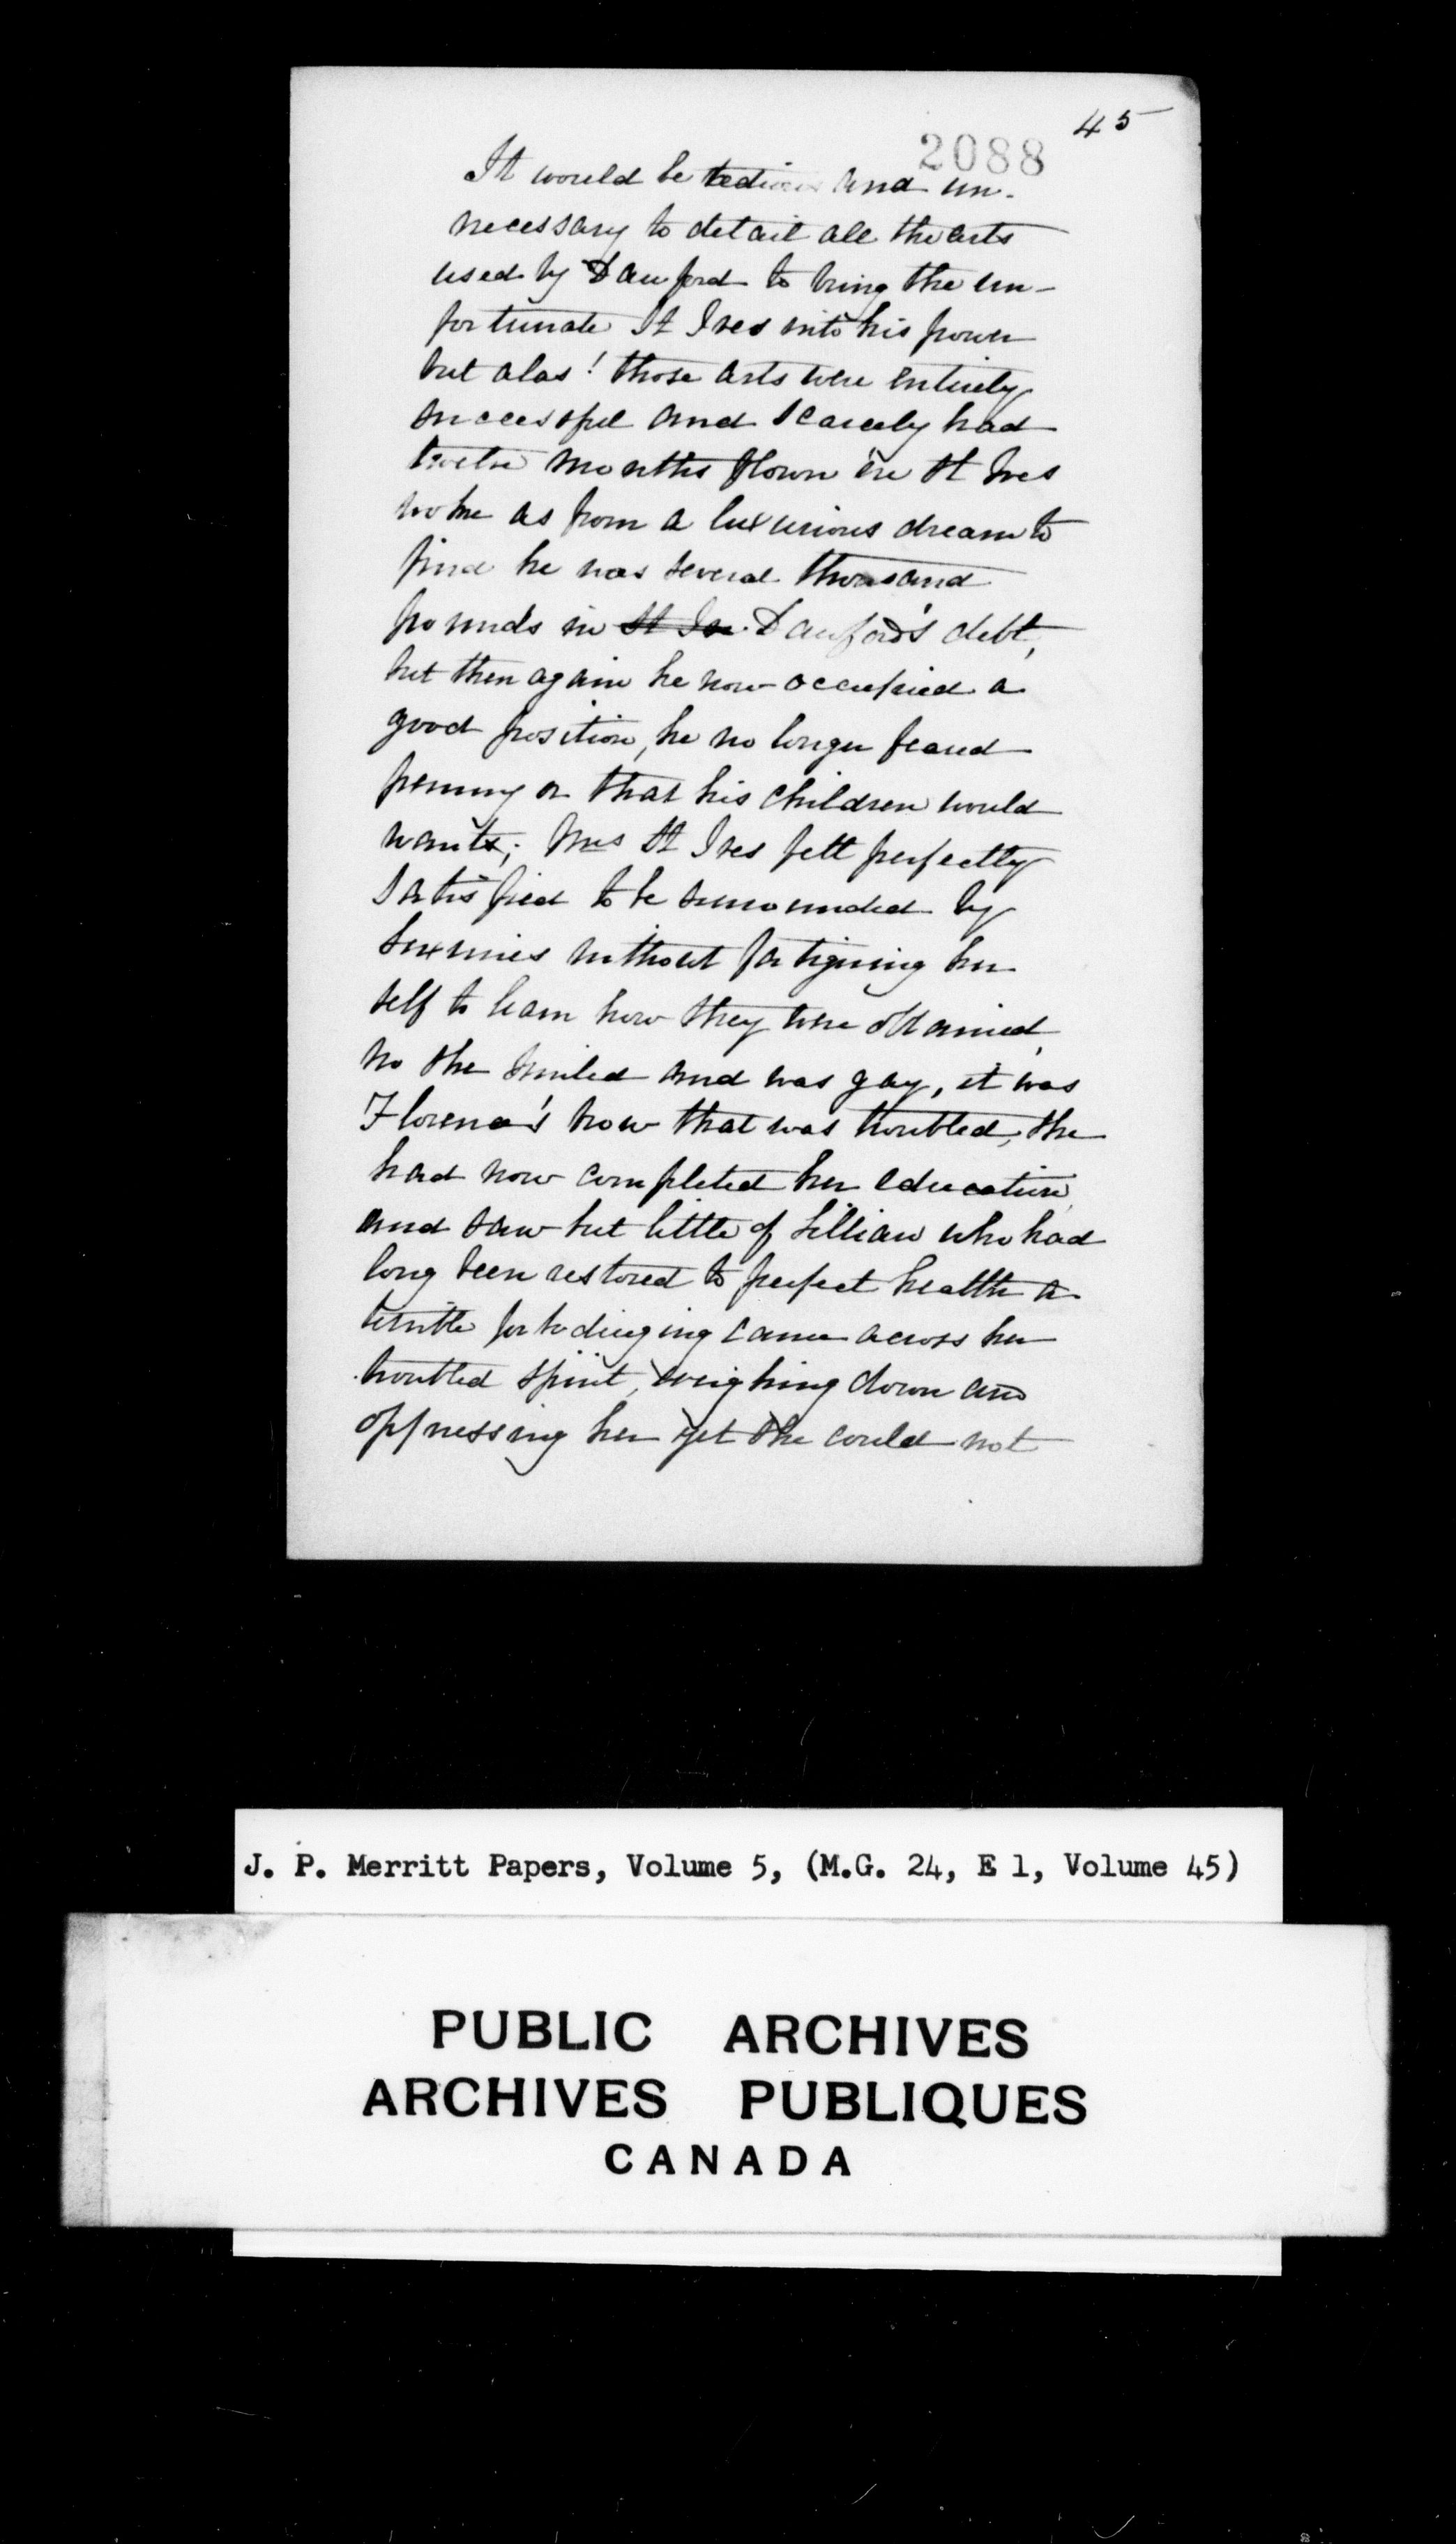 45
2088
It would be tedious and un-
necessary to detail all the arts
used by Danford to bring the un-
fortunate St Ives into his power
but alas! those arts were entirely
successful and scarcely had
twelve months flown ere St Ives
woke as from a luxurious dream to
find he was several thousand
pounds in St Ive Danford's debt,
but then again he now occupied a
good position, he no longer feared
penury or that his children would
want; Mrs St Ives felt perfectly
satisfied to be surrounded by
luxuries without fatiguing her
self to learn how they were obtained,
so she smiled and was gay, it was
Florence's brow that was troubled, she
had now completed her education,
and saw but little of Lillian who had
long been restored to perfect health a
terrible forbodinging came across her
troubled spirit, weighing down and
oppressing her yet she could not
J. P. Merritt Papers, Volume 5, (M.G. 24, E 1, Volume 45)
PUBLIC ARCHIVES
ARCHIVES PUBLIQUES
CANADA